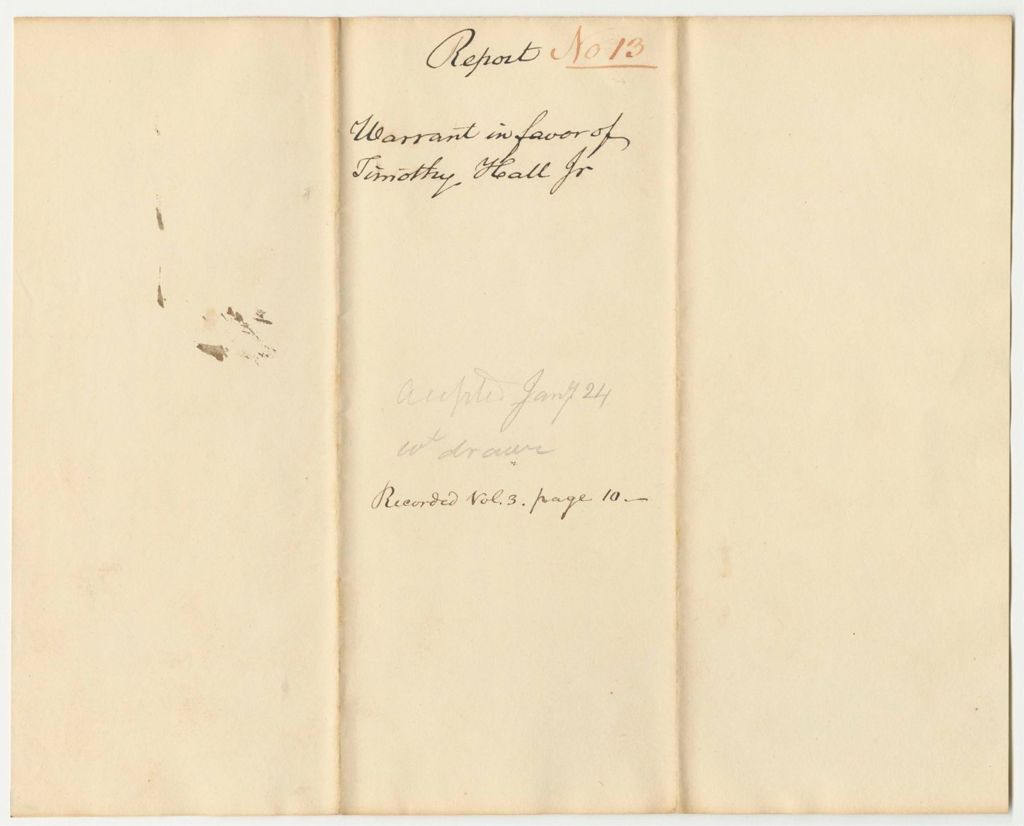 Report No 13
Warrant in favor of
Timothy Hall Jr
Accepted Jany 24
wt drawn
Recorded Vol. 3. page 10.—